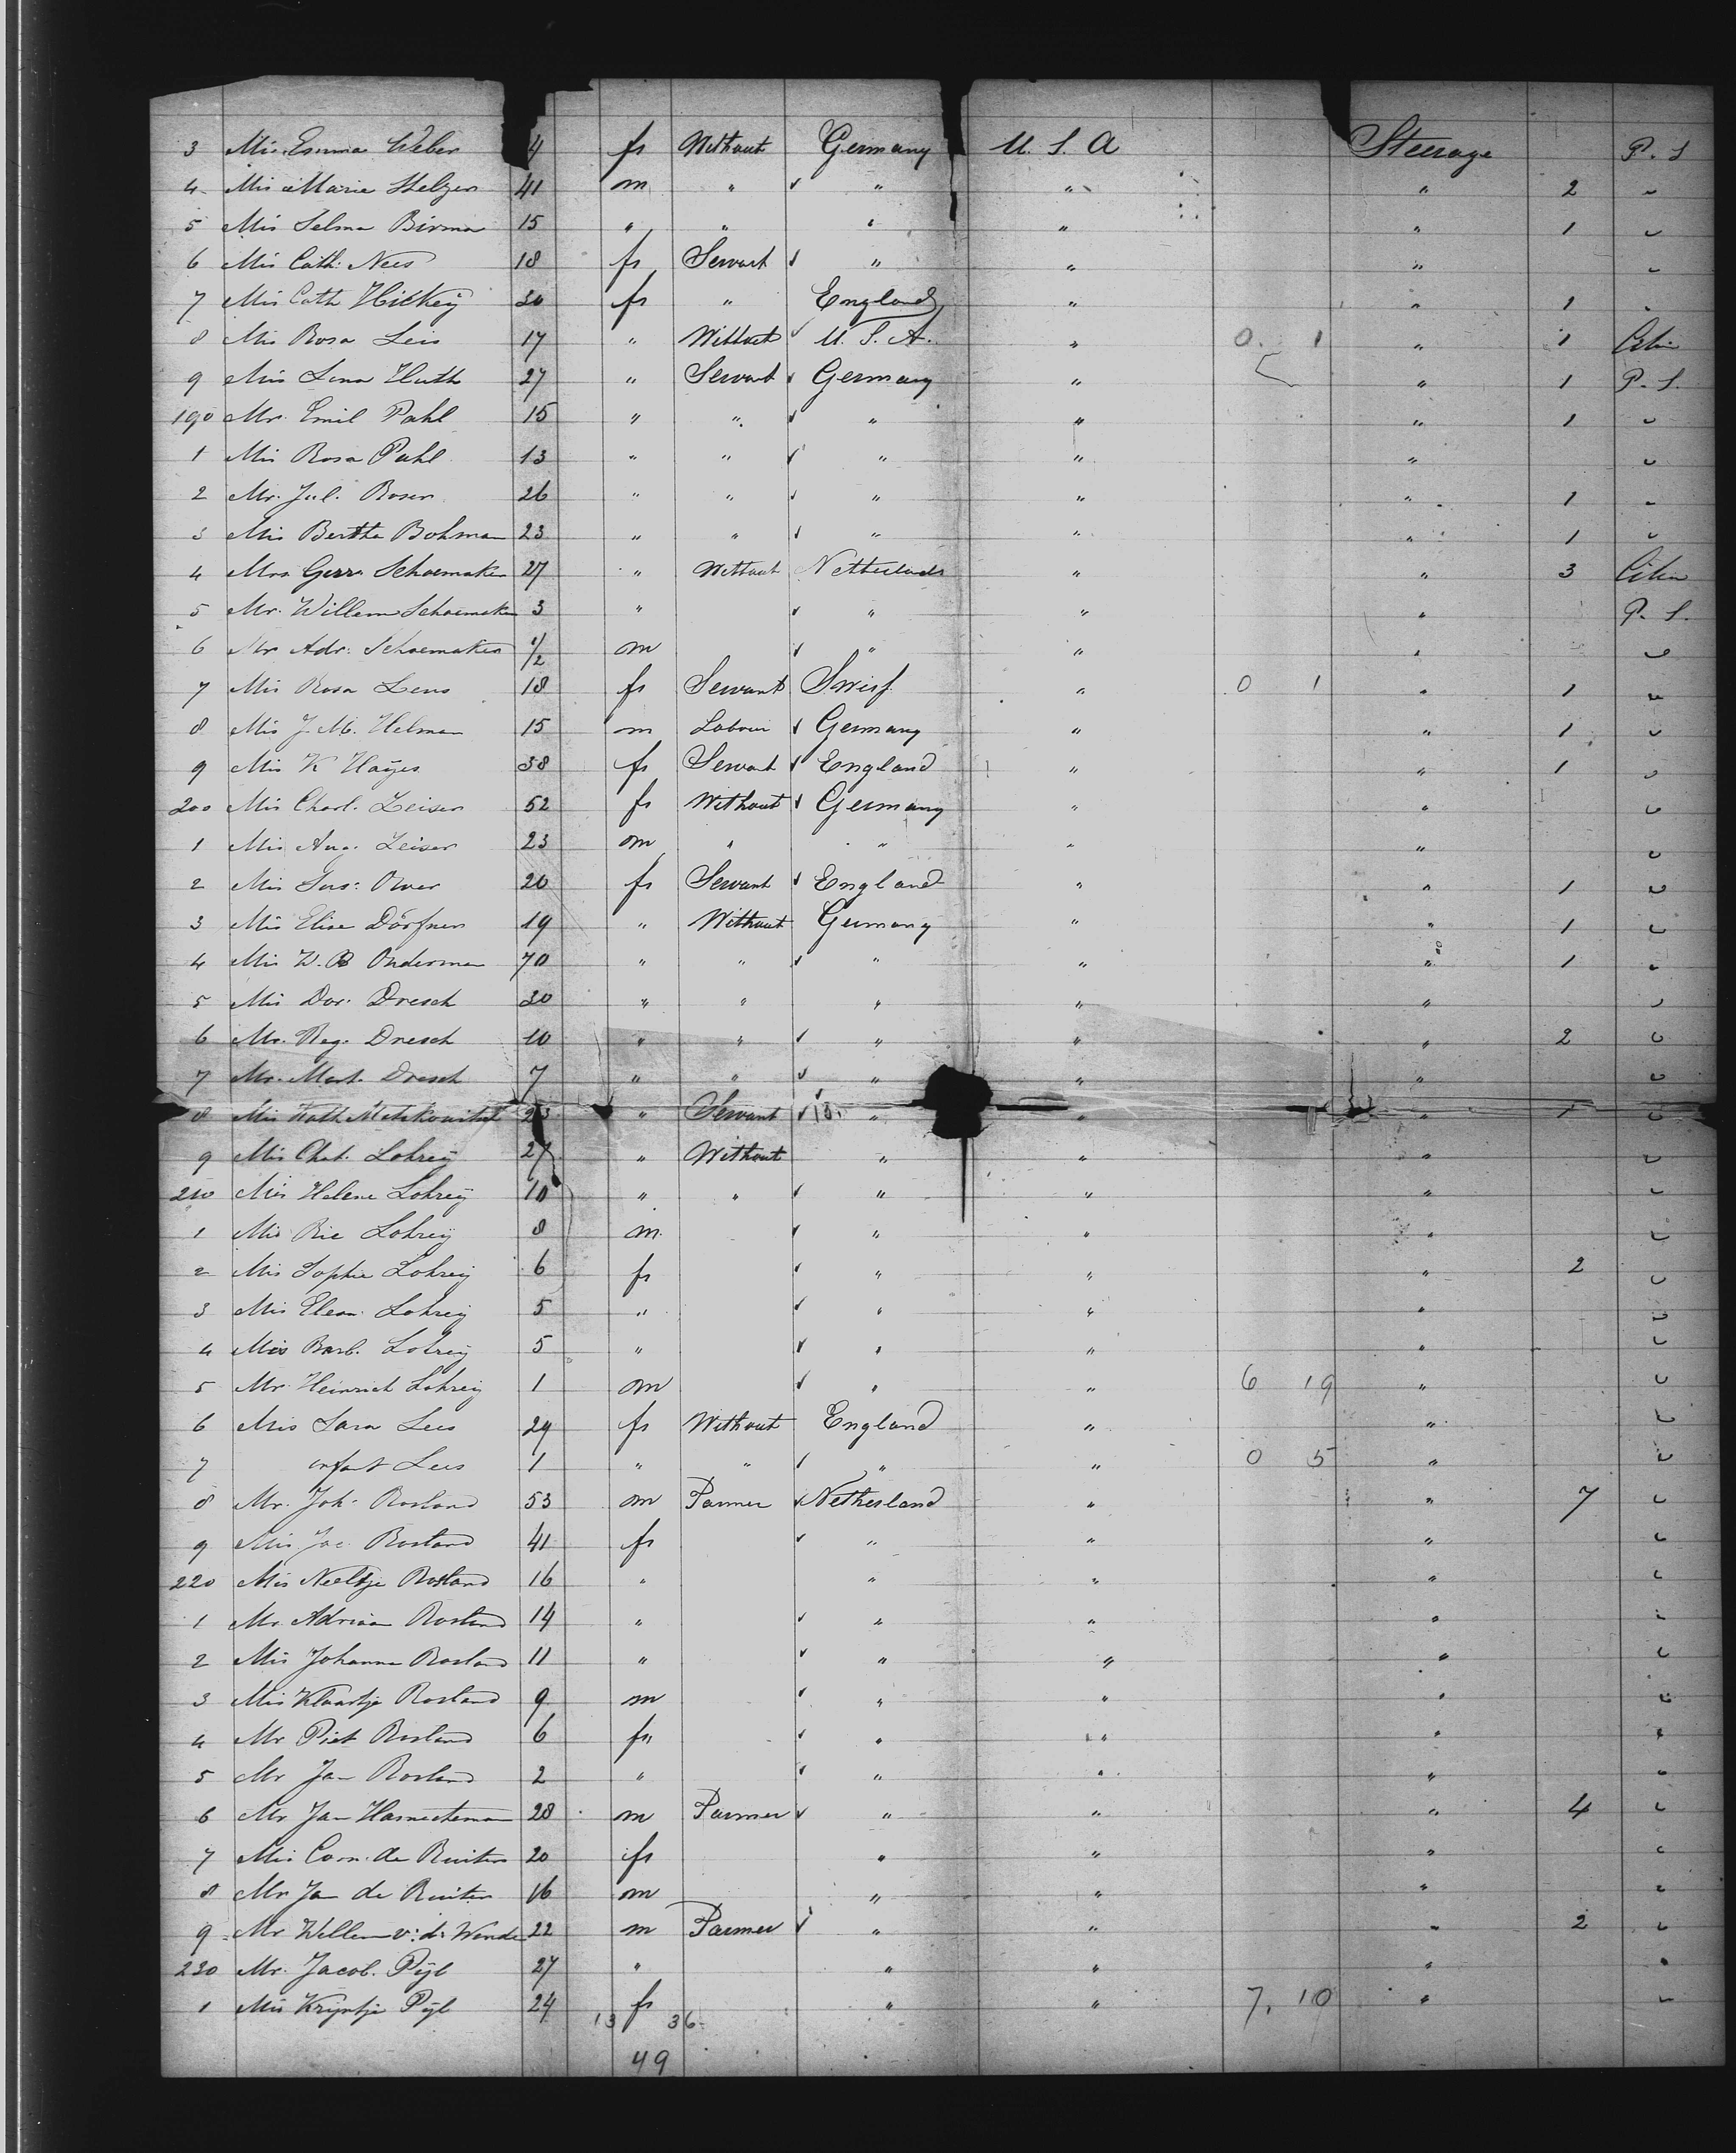 3 Mis Emma Weber 4 fs Without Germany U. S. A Steerage P. S
4 Mis Marie Stelzer 41 m " " " " 2 "
5 Mis Selma Birma 15 " " " " " 1 "
6 Mis Cath: Nees 18 fs Servant " " " "
7 Mis Cath Hickey 30 fs " England " " 1 "
8 Mis Rosa Leis 17 " Without U. S. A. " 0. 1 " 1
9 Mis Lena Huth 27 " Servant Germany " " 1 P. S.
190 Mr. Emil Pahl 15 " " " " " 1 "
1 Mis Rosa Pahl 13 " " " " " "
2 Mr. Jul. Boser 26 " " " " " 1 "
3 Mis Bertha Bohman 23 " " " " " 1 "
4 Mrs Gerr. Schoemaker 27 " Without Netherlands " " 3
5 Mr. Willem Schoemaker 3 " " " " P. S.
6 Mr Adr: Schoemaker 1/2 m " " " "
7 Mis Rosa Lens 18 fs Servant Swiss " 0 1 " 1 "
8 Mis J. M. Helman 15 m Labour Germany " " 1 "
9 Mis K Hayes 38 fs Servant England " " 1 "
200 Mis Charl. Zeiser 52 fs Without Germany " " "
1 Mis Aug. Zeiser 23 m " " " " "
2 Mis Sus: Over 20 fs Servant England " " 1 "
3 Mis Elise Dörfner 19 " Without Germany " " 1 "
4 Mis W. B Onderman 70 " " " " " 1 "
5 Mis Dor. Dresch 30 " " " " " "
6 Mr. Reg. Dresch 10 " " " " " 2 "
7 Mr. Mart. Dresch 7 " " " " " "
8 Mis Kath 23 " Servant " " " 1 "
9 Mis Chat. Lohreÿ 27 " Without " " " "
210 Mis Helene Lohreÿ 10 " " " " " "
1 Mis Ric Lohreÿ 8 m " " " "
2 Mis Sophie Lohreÿ 6 fs " " " 2 "
3 Mis Elean. Lohreÿ 5 " " " " "
4 Mis Barb. Lohreÿ 5 " " " " "
5 Mr. Heinrich Lohreÿ 1 m " " 6 19 " "
6 Mis Sara Lees 29 fs Without England " " "
7 infant Lees 1 " " " " 0 5 " "
8 Mr. Joh: Rosland 53 m Farmer Netherland " " 7 "
9 Mis Jac. Rosland 41 fs " " " "
220 Mis Neeltje Rosland 16 " " " " "
1 Mr. Adriaan Rosland 14 " " " " "
2 Mis Johanna Rosland 11 " " " " "
3 Mis Klaartje Rosland 9 m " " " "
4 Mr Piet Rosland 6 fs " " " "
5 Mr Jan Rosland 2 " " " " "
6 Mr Jan 28 m Farmer " " " 4 "
7 Mis Corn. de Ruiter 20 fs " " " "
8 Mr Jan de Ruiter 16 m " " " "
9 Mr Willem v: d: Wende 22 m Farmer " " " 2 "
230 Mr. Jacob. Pijl 27 " " " " "
1 Mis Krijntje Pijl 24 fs " " 7. 10 " "
13 36
49